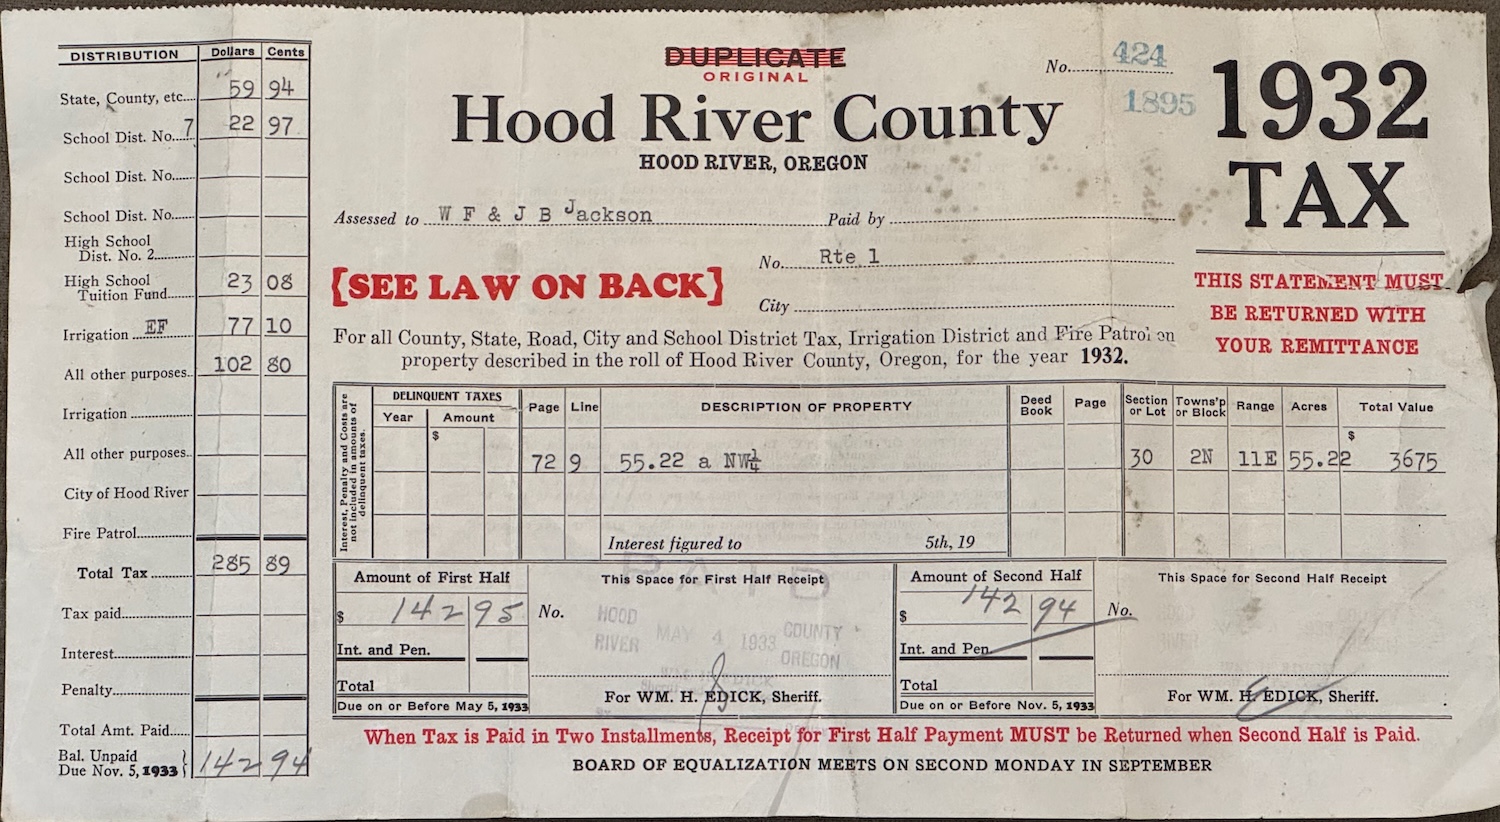 DISTRIBUTION Dollars Cents
State, County, etc.... 59 94
School Dist. No. 7 22 97
School Dist. No......
School Dist. No......
High School
Dist. No. 2........
High School
Tuition Fund........ 23 08
Irrigation EF 77 10
All other purposes.. 102 80
Irrigation ..............
All other purposes..
City of Hood River
Fire Patrol.............
Total Tax ........... 285 89
Tax paid...............
Interest................
Penalty................
Total Amt. Paid.....
Bal. Unpaid
Due Nov. 5, 1933 } 142 94
DUPLICATE
ORIGINAL
Hood River County
HOOD RIVER, OREGON
No. 424
1895
1932
TAX
Assessed to W F & J B Jackson Paid by
No. Rte 1
City
[SEE LAW ON BACK]
THIS STATEMENT MUST
BE RETURNED WITH
YOUR REMITTANCE
For all County, State, Road, City and School District Tax, Irrigation District and Fire Patrol on
property described in the roll of Hood River County, Oregon, for the year 1932.
Interest, Penalty and Costs are
not included in amounts of
delinquent taxes.
DELINQUENT TAXES
Year Amount
$
Page Line DESCRIPTION OF PROPERTY Deed Book Page Section or Lot Towns'p or Block Range Acres Total Value
$
72 9 55.22 a NW¼ 30 2N 11E 55.22 3675
Interest figured to 5th, 19
Amount of First Half This Space for First Half Receipt
$ 142 95 No.
Int. and Pen.
Total
Due on or Before May 5, 1933
HOOD RIVER MAY 4 1933 COUNTY OREGON
For WM. H. EDICK, Sheriff.
Amount of Second Half This Space for Second Half Receipt
$ 142 94 No.
Int. and Pen.
Total
Due on or Before Nov. 5, 1933
For WM. H. EDICK, Sheriff.
When Tax is Paid in Two Installments, Receipt for First Half Payment MUST be Returned when Second Half is Paid.
BOARD OF EQUALIZATION MEETS ON SECOND MONDAY IN SEPTEMBER